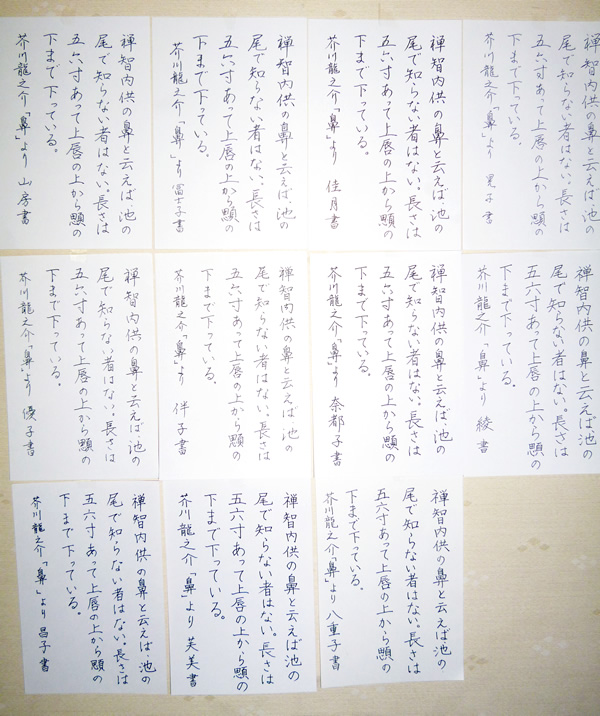 禅智内供の鼻と云えば、池の
尾で知らない者はない。長さは
五六寸あって上唇の上から顋の
下まで下っている。
芥川龍之介「鼻」より 子書
禅智内供の鼻と云えば、池の
尾で知らない者はない。長さは
五六寸あって上唇の上から顋の
下まで下っている。
芥川龍之介「鼻」より 佳月書
禅智内供の鼻と云えば、池の
尾で知らない者はない。長さは
五六寸あって上唇の上から顋の
下まで下っている。
芥川龍之介「鼻」より 富士子書
禅智内供の鼻と云えば、池の
尾で知らない者はない。長さは
五六寸あって上唇の上から顋の
下まで下っている。
芥川龍之介「鼻」より 山房書
禅智内供の鼻と云えば、池の
尾で知らない者はない。長さは
五六寸あって上唇の上から顋の
下まで下っている。
芥川龍之介「鼻」より 綾書
禅智内供の鼻と云えば、池の
尾で知らない者はない。長さは
五六寸あって上唇の上から顋の
下まで下っている。
芥川龍之介「鼻」より 奈都子書
禅智内供の鼻と云えば、池の
尾で知らない者はない。長さは
五六寸あって上唇の上から顋の
下まで下っている。
芥川龍之介「鼻」より 伴子書
禅智内供の鼻と云えば、池の
尾で知らない者はない。長さは
五六寸あって上唇の上から顋の
下まで下っている。
芥川龍之介「鼻」より 優子書
禅智内供の鼻と云えば、池の
尾で知らない者はない。長さは
五六寸あって上唇の上から顋の
下まで下っている。
芥川龍之介「鼻」より 八重子書
禅智内供の鼻と云えば、池の
尾で知らない者はない。長さは
五六寸あって上唇の上から顋の
下まで下っている。
芥川龍之介「鼻」より 芙美書
禅智内供の鼻と云えば、池の
尾で知らない者はない。長さは
五六寸あって上唇の上から顋の
下まで下っている。
芥川龍之介「鼻」より 昌子書